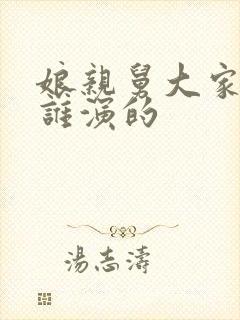 娘親舅大家
誰演的
湯志濤